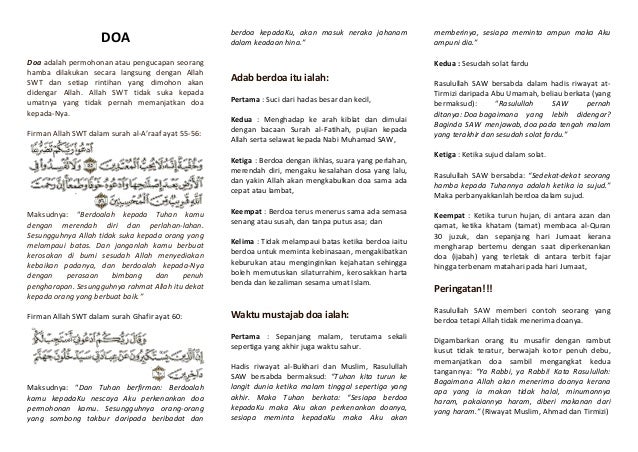 DOA
Doa adalah permohonan atau pengucapan seorang
hamba dilakukan secara langsung dengan Allah
SWT dan setiap rintihan yang dimohon akan
didengar Allah. Allah SWT tidak suka kepada
umatnya yang tidak pernah memanjatkan doa
kepada-Nya.
Firman Allah SWT dalam surah al-A'raaf ayat 55-56:
ادعوا ربكم تضرعا
وخفية إنه لا يحب المعتدين ولا تفسدوا في
الأرض بعد إصلاحها وادعوه خوفا وطمعا إن رحمت
الله قريب من المحسنين
Maksudnya: "Berdoalah kepada Tuhan kamu
dengan merendah diri dan perlahan-lahan.
Sesungguhnya Allah tidak suka orang yang
melampaui batas. Dan janganlah kamu berbuat
kerosakan di bumi sesudah Allah menyediakan
kebaikan padanya, dan berdoalah kepada-Nya
dengan perasaan bimbang dan penuh
pengharapan. Sesungguhnya rahmat Allah itu dekat
kepada orang yang berbuat baik."
Firman Allah SWT dalam surah Ghafir ayat 60:
وقال ربكم ادعوني
أستجب لكم إن الذين يستكبرون عن عبادتي سيدخلون جهنم
داخرين
Maksudnya: "Dan Tuhan berfirman: Berdoalah
kamu kepadaKu nescaya Aku perkenankan doa
permohonan kamu. Sesungguhnya orang-orang
yang sombong takbur daripada beribadat dan
berdoa kepadaKu, akan masuk neraka jahanam
dalam keadaan hina."
Adab berdoa itu ialah:
Pertama : Suci dari hadas besar dan kecil,
Kedua : Menghadap ke arah kiblat dan dimulai
dengan bacaan Surah al-Fatihah, pujian kepada
Allah serta selawat kepada Nabi Muhamad SAW,
Ketiga : Berdoa dengan ikhlas, suara yang perlahan,
merendah diri, mengaku kesalahan dosa yang lalu,
dan yakin Allah akan mengkabulkan doa sama ada
cepat atau lambat,
Keempat : Berdoa terus menerus sama ada semasa
senang atau susah, dan tanpa putus asa; dan
Kelima : Tidak melampaui batas ketika berdoa iaitu
berdoa untuk meminta kebinasaan, mengakibatkan
keburukan atau menginginkan kejahatan sehingga
boleh memutuskan silaturrahim, kerosakkan harta
benda dan kezaliman sesama umat Islam.
Waktu mustajab doa ialah:
Pertama : Sepanjang malam, terutama sekali
sepertiga yang akhir juga waktu sahur.
Hadis riwayat al-Bukhari dan Muslim, Rasulullah
SAW bersabda bermaksud: "Tuhan kita turun ke
langit dunia ketika malam tinggal sepertiga yang
akhir. Maka Tuhan berkata: "Sesiapa berdoa
kepadaKu maka Aku akan perkenankan doanya,
sesiapa meminta kepadaKu maka Aku akan
memberinya, sesiapa meminta ampun maka Aku
ampuni dia."
Kedua : Sesudah solat fardu
Rasulullah SAW bersabda dalam hadis riwayat at-
Tirmizi daripada Abu Umamah, beliau berkata (yang
bermaksud): "Rasulullah SAW pernah
ditanya: Doa bagaimana yang lebih didengar?
Baginda SAW menjawab, doa pada tengah malam
yang terakhir dan sesudah solat fardu."
Ketiga : Ketika sujud dalam solat.
Rasulullah SAW bersabda: "Sedekat-dekat seorang
hamba kepada Tuhannya adalah ketika ia sujud."
Maka perbanyakkanlah berdoa dalam sujud.
Keempat : Ketika turun hujan, di antara azan dan
qamat, ketika khatam (tamat) membaca al-Quran
30 juzuk, dan sepanjang hari Jumaat kerana
mengharap bertemu dengan saat diperkenankan
doa (ijabah) yang terletak di antara terbit fajar
hingga terbenam matahari pada hari Jumaat,
Peringatan!!!
Rasulullah SAW memberi contoh seorang yang
berdoa tetapi Allah tidak menerima doanya.
Digambarkan orang itu musafir dengan rambut
kusut tidak teratur, berwajah kotor penuh debu,
memanjatkan doa sambil mengangkat kedua
tangannya: "Ya Rabbi, ya Rabbi! Kata Rasulullah:
Bagaimana Allah akan menerima doanya kerana
apa yang ia makan tidak halal, minumannya
haram, pakaiannya haram, diberi makanan dari
yang haram." (Riwayat Muslim, Ahmad dan Tirmizi)